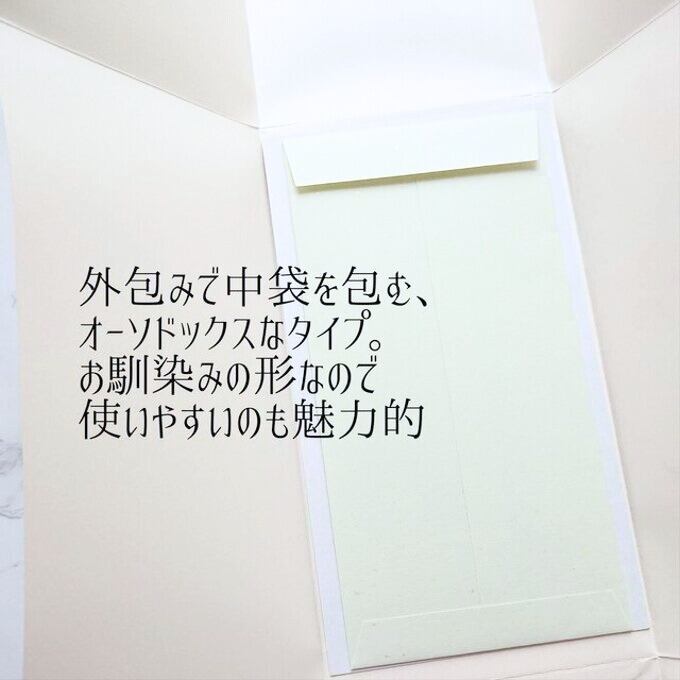 外包みで中袋を包む、
オーソドックスなタイプ。
お馴染みの形なので
使いやすいのも魅力的